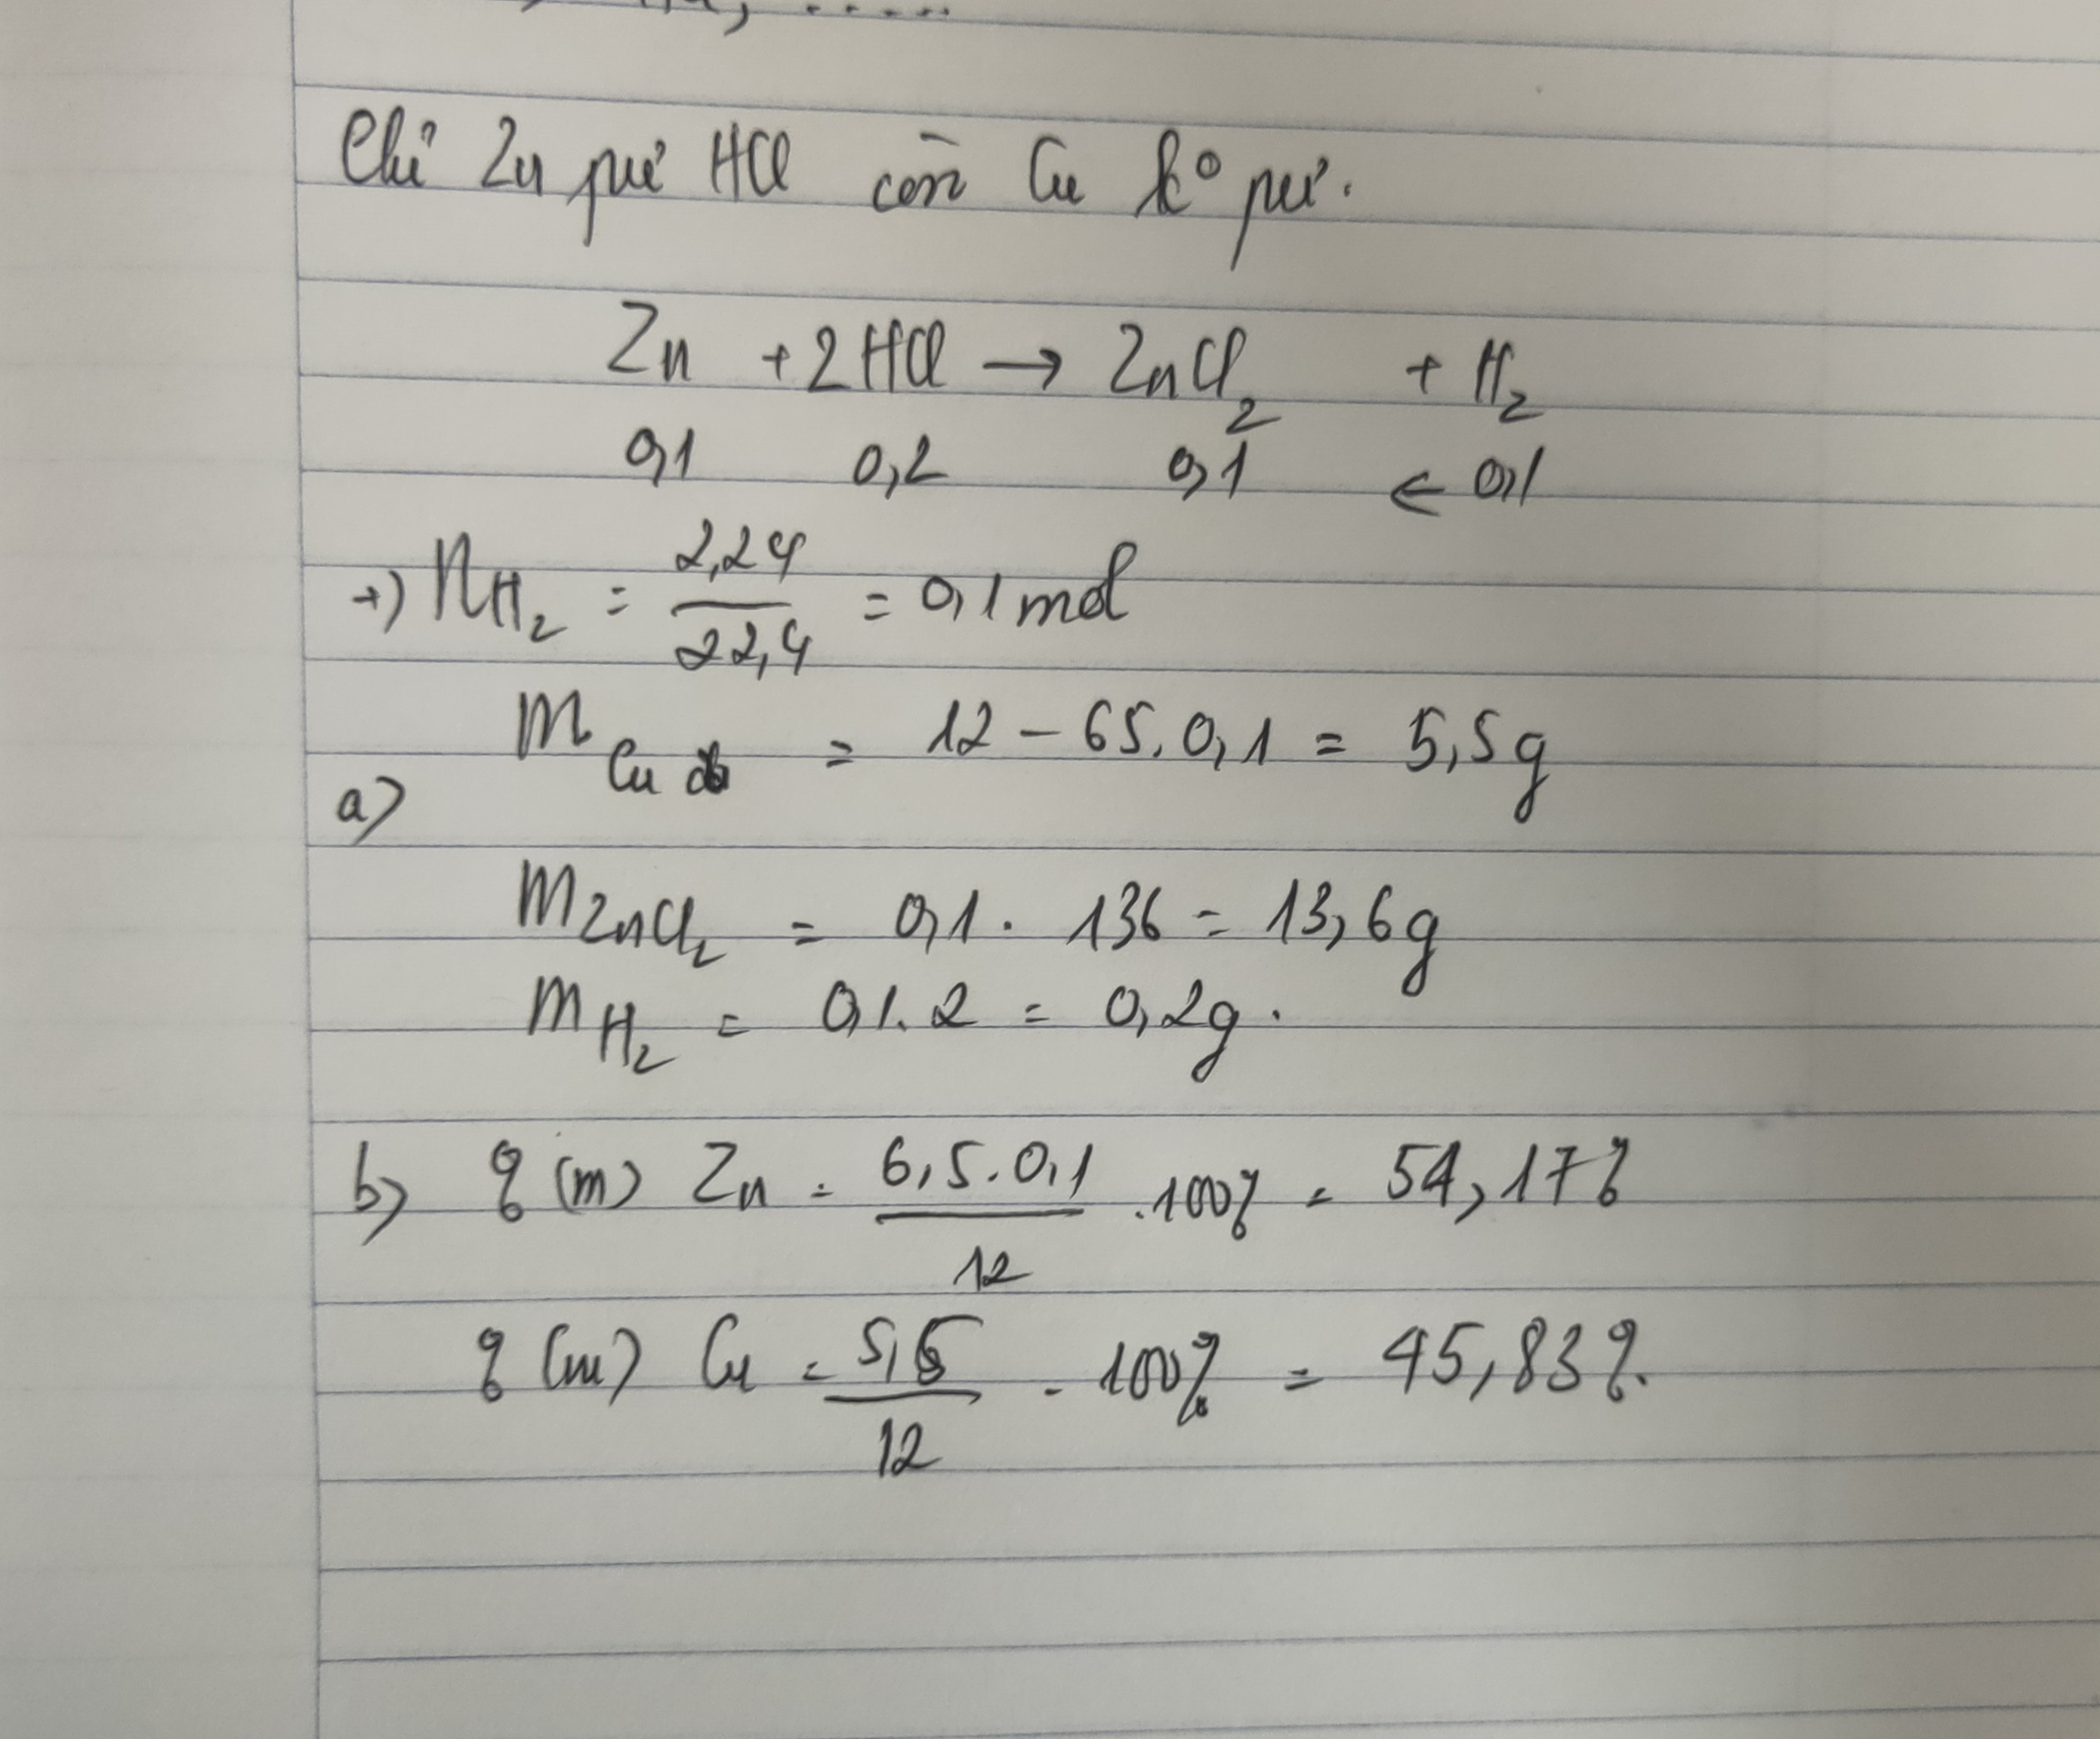 Chỉ Zn pứ HCl còn Cu k° pứ.
Zn + 2HCl → ZnCl₂ + H₂
0,1 0,2 0,1 ← 0,1
+) nH₂ = 2,24/22,4 = 0,1 mol
mCu = 12 - 65.0,1 = 5,5g
a)
mZnCl₂ = 0,1. 136 = 13,6g
mH₂ = 0,1.2 = 0,2g.
b) % (m) Zn = 6,5.0,1/12 .100% = 54,17%
% (m) Cu = 5,5/12 . 100% = 45,83%.